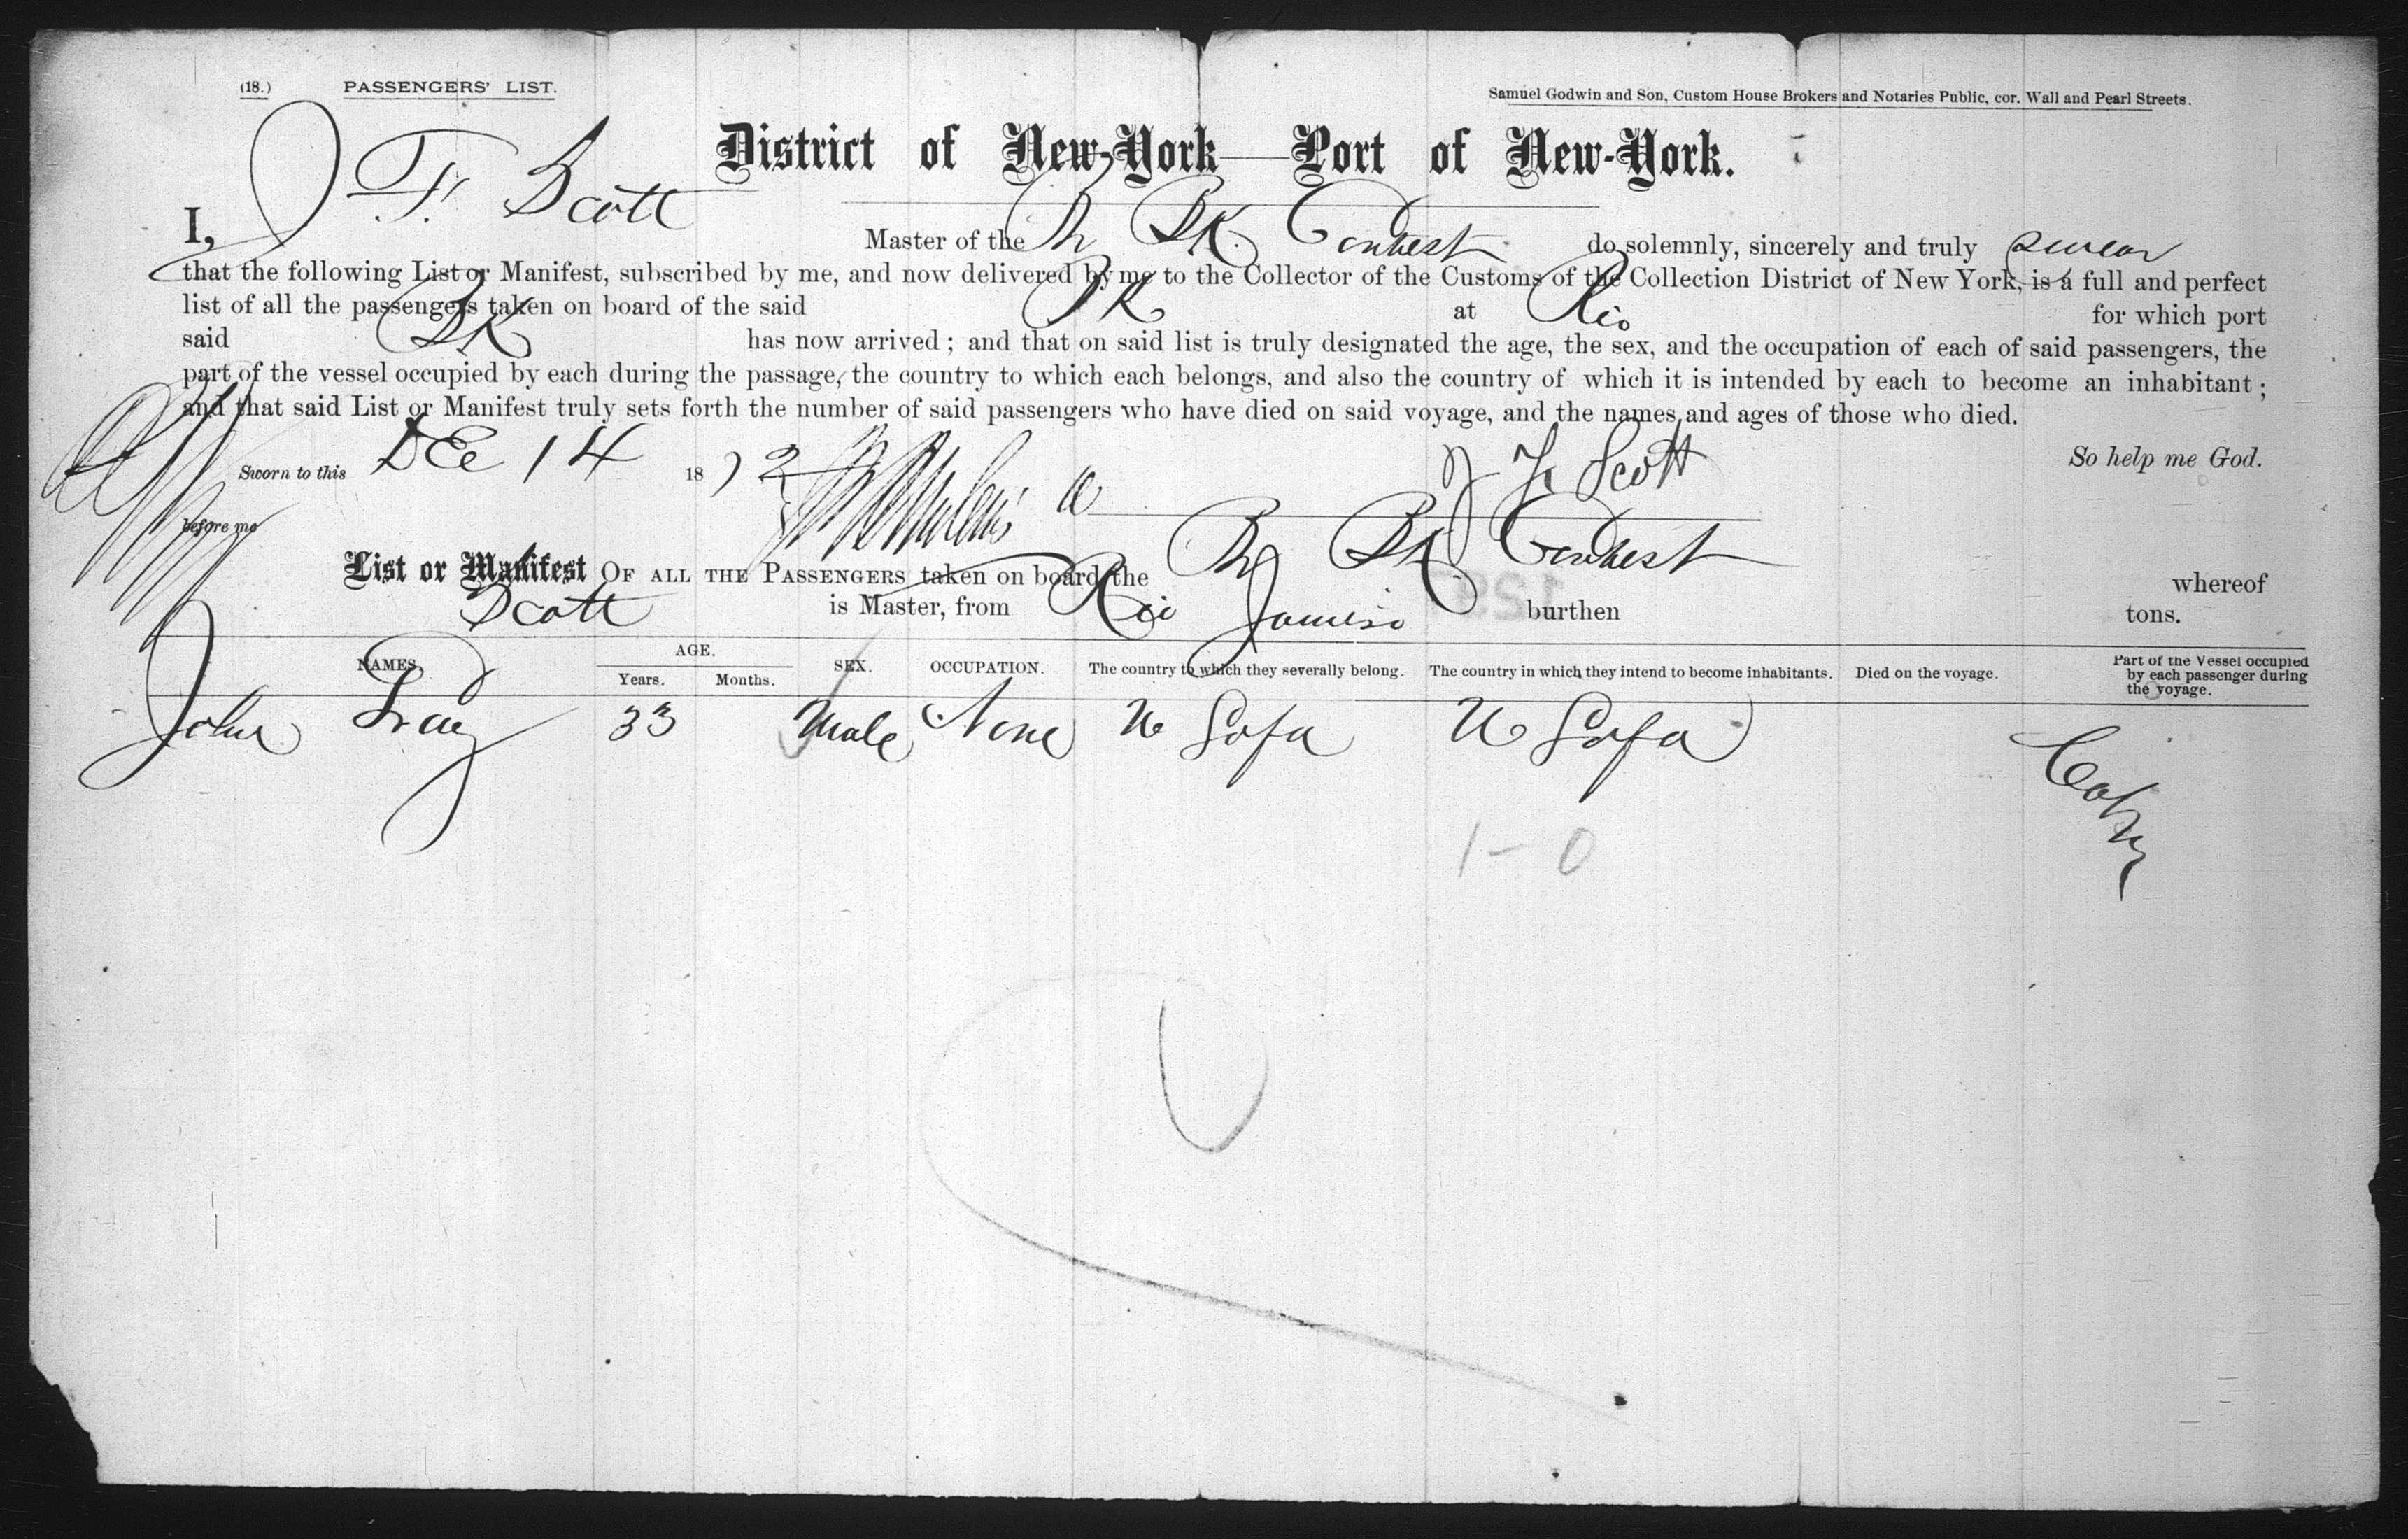 (18.) PASSENGERS' LIST.
Samuel Godwin and Son, Custom House Brokers and Notaries Public, cor. Wall and Pearl Streets.
District of New-York—Port of New-York.
I, J F. Scott Master of the Br BK. Contest do solemnly, sincerely and truly swear
that the following List or Manifest, subscribed by me, and now delivered by me to the Collector of the Customs of the Collection District of New York, is a full and perfect
list of all the passengers taken on board of the said BK at Rio for which port
said BK has now arrived; and that on said list is truly designated the age, the sex, and the occupation of each of said passengers, the
part of the vessel occupied by each during the passage, the country to which each belongs, and also the country of which it is intended by each to become an inhabitant;
and that said List or Manifest truly sets forth the number of said passengers who have died on said voyage, and the names and ages of those who died.
Sworn to this DEc 14 1872 J F Scott So help me God.
before me
List or Manifest OF ALL THE PASSENGERS taken on board the Br BK Contest whereof
Scott is Master, from Rio burthen tons.
NAMES. AGE. Years. Months. SEX. OCCUPATION. The country to which they severally belong. The country in which they intend to become inhabitants. Died on the voyage. Part of the Vessel occupied by each passenger during the voyage.
John 33 Male None
1-0